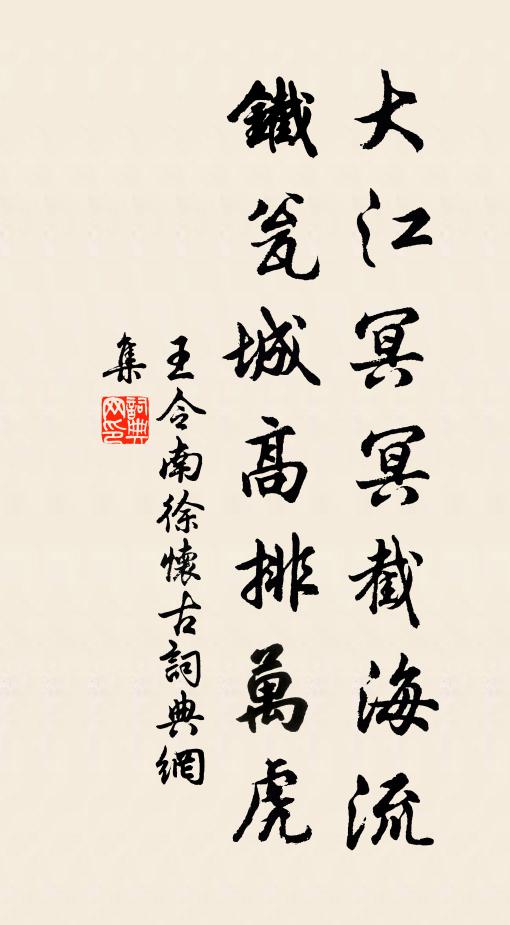 大江冥冥截海流
鐵瓮城高排萬虎
王令南徐懷古詞典網
集
詞典网印